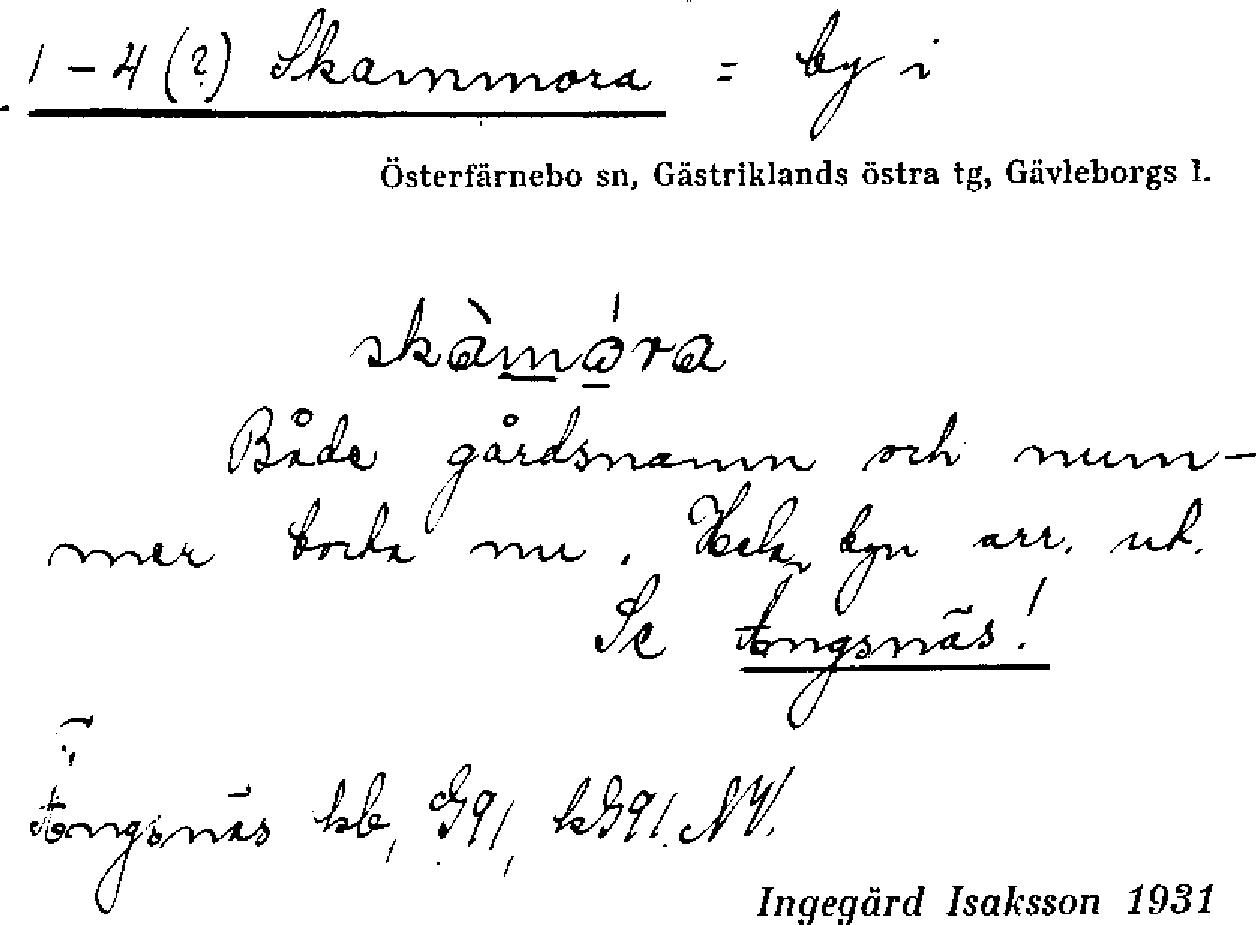 1-4 (?) Skammora = by i
Österfärnebo sn, Gästriklands östra tg, Gävleborgs l.
skàmóra
Både gårdsnamn och num-
mer borta nu. Hela byn arr. uh.
Se Ängsnäs!
Ängsnäs kb, G91, kG91. NV.
Ingegärd Isaksson 1931